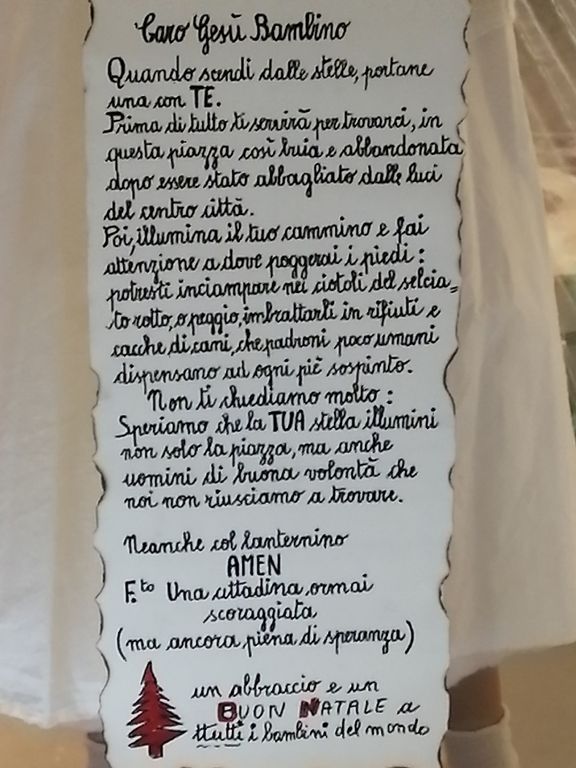 Caro Gesù Bambino
Quando scendi dalle stelle, portane
una con TE.
Prima di tutto ti servirà per trovarci, in
questa piazza così buia e abbandonata
dopo essere stato abbagliato dalle luci
del centro città.
Poi, illumina il tuo cammino e fai
attenzione a dove poggerai i piedi:
potresti inciampare nei ciotoli del selcia=
to rotto, o peggio, imbrattarti in rifiuti e
cacche di cani, che padroni poco umani
dispensano ad ogni piè sospinto.
Non ti chiediamo molto:
Speriamo che la TUA stella illumini
non solo la piazza, ma anche
uomini di buona volontà che
noi non riusciamo a trovare.
Neanche col lanternino
AMEN
F.to Una cittadina ormai
scoraggiata
(ma ancora piena di speranza)
un abbraccio e un
BUON NATALE a
ttutti i bambini del mondo